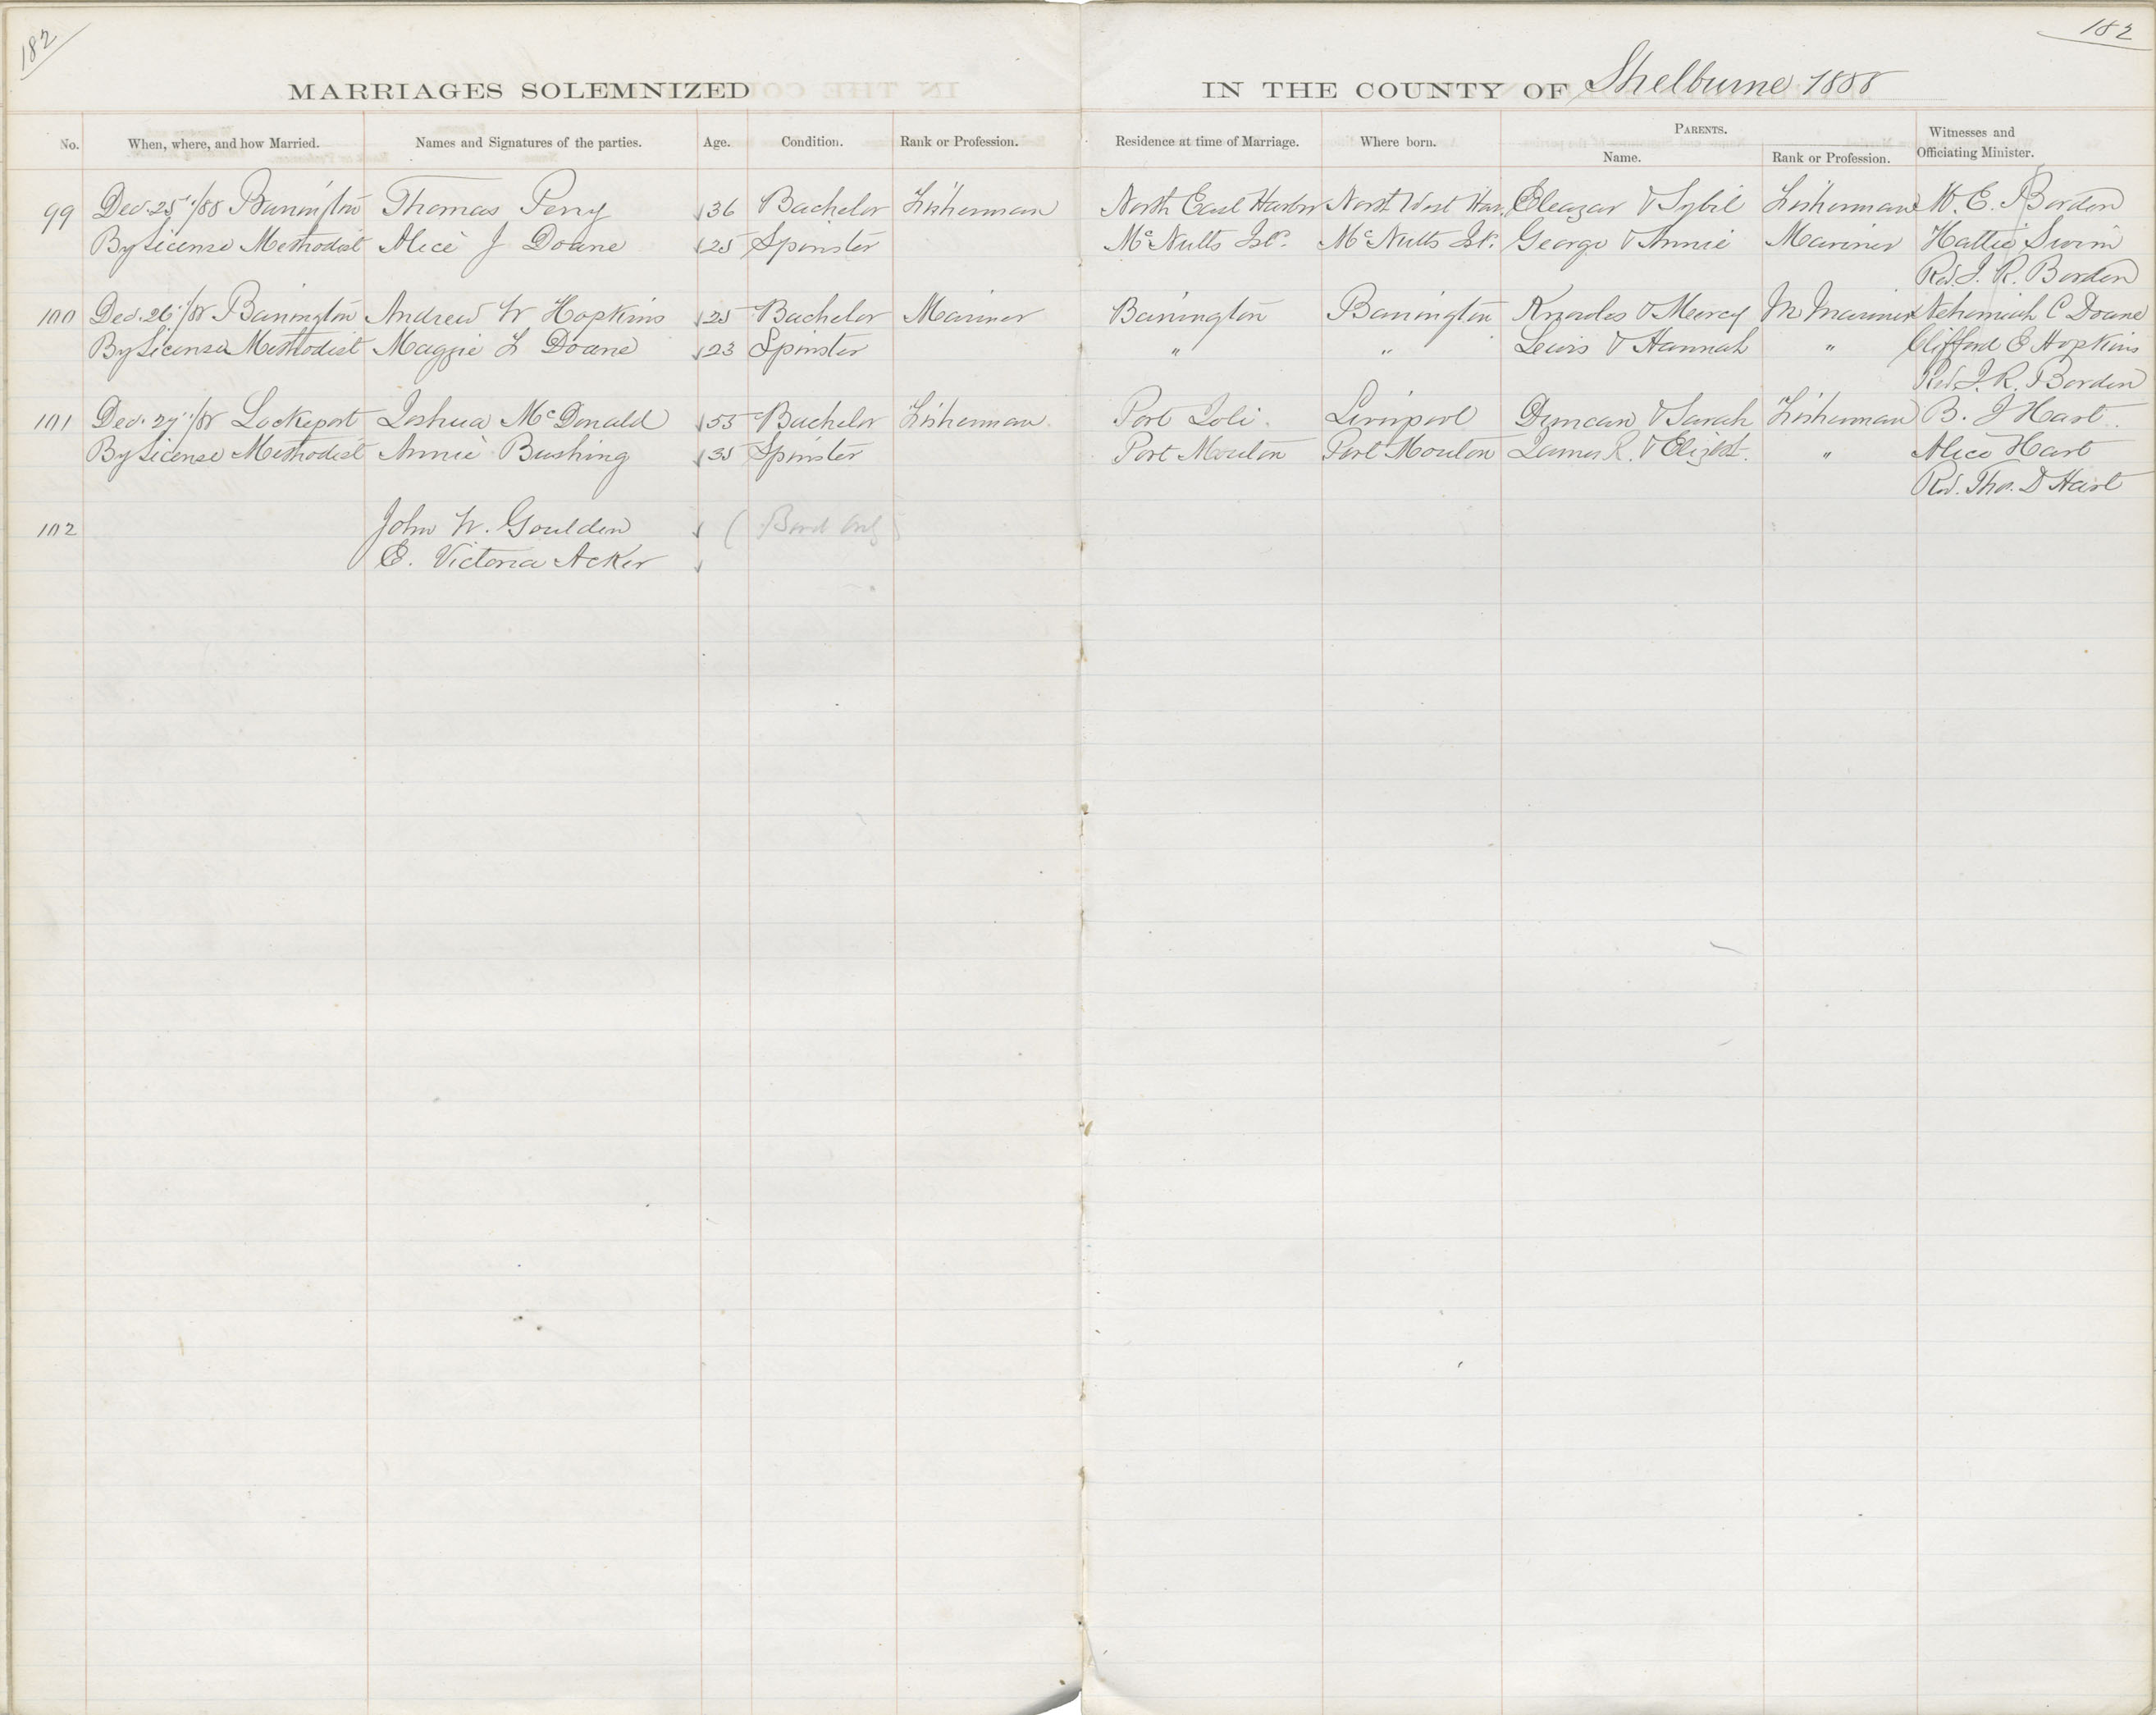 182
182
MARRIAGES SOLEMNIZED IN THE COUNTY OF Shelburne 1888
No. When, where, and how Married. Names and Signatures of the parties. Age. Condition. Rank or Profession. Residence at time of Marriage. Where born. PARENTS. Name. Rank or Profession. Witnesses and Officiating Minister.
99 Dec. 25th/88 Barrington Thomas Perry 36 Bachelor Fisherman North East Harbor North West Har. Eleazar & Sybil Fisherman W. E. Borden
By License Methodist Alice J Doane 25 Spinster McNutts Isl. McNutts Isl. George & Annie Mariner Hattie Swim
Rev. J. R. Borden
100 Dec. 26/88 Barrington Andrew W Hopkins 25 Bachelor Mariner Barrington Barrington Knowles & Mercy M Mariner Nehemiah C Doane
By License Methodist Maggie L Doane 23 Spinster " " Lewis & Hannah " Clifford E Hopkins
Rev. J. R. Borden
101 Dec. 27/88 Lockeport Joshua McDonald 55 Bachelor Fisherman Port Joli Liverpool Duncan & Sarah Fisherman B. J Hart
By License Methodist Annie Bushing 35 Spinster Port Mouton Port Mouton James R. & Elizbt. " Alice Hart
Rev. Tho. D Hart
102 John W. Goulden (Bond Only)
E. Victoria Acker